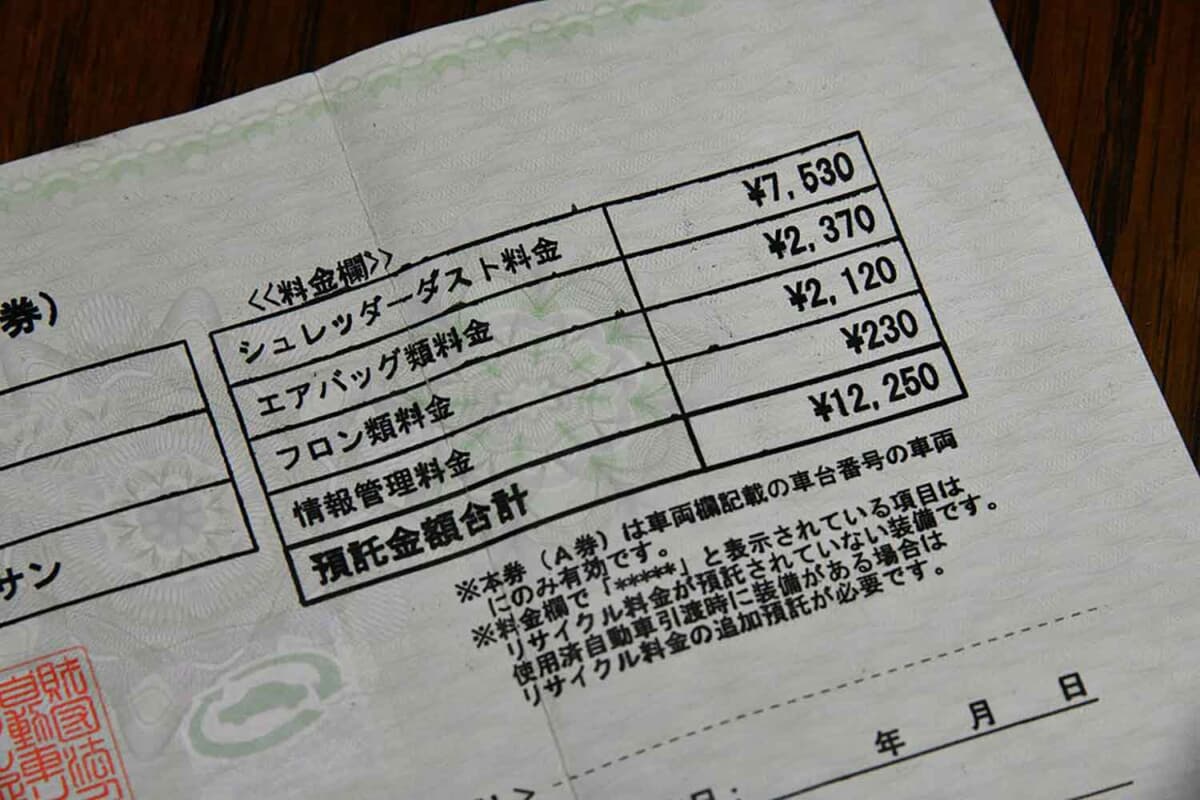 券)
<<料金欄>>
シュレッダーダスト料金 ¥7,530
エアバッグ類料金 ¥2,370
フロン類料金 ¥2,120
情報管理料金 ¥230
預託金額合計 ¥12,250
サン
※本券（A券）は車両欄記載の車台番号の車両
にのみ有効です。
※料金欄で「*****」と表示されている項目は
リサイクル料金が預託されていない装備です。
使用済自動車引渡時に装備がある場合は
リサイクル料金の追加預託が必要です。
年 月 日
日:
財団法
自動車